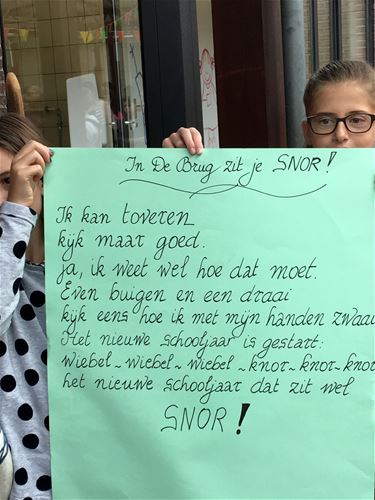 In De Brug zit je SNOR!
Ik kan toveren
kijk maar goed.
ja, ik weet wel hoe dat moet.
Even buigen en een draai
kijk eens hoe ik met mijn handen zwaai
Het nieuwe schooljaar is gestart:
wiebel~wiebel~wiebel~knor~knor~knor
het nieuwe schooljaar dat zit wel
SNOR!